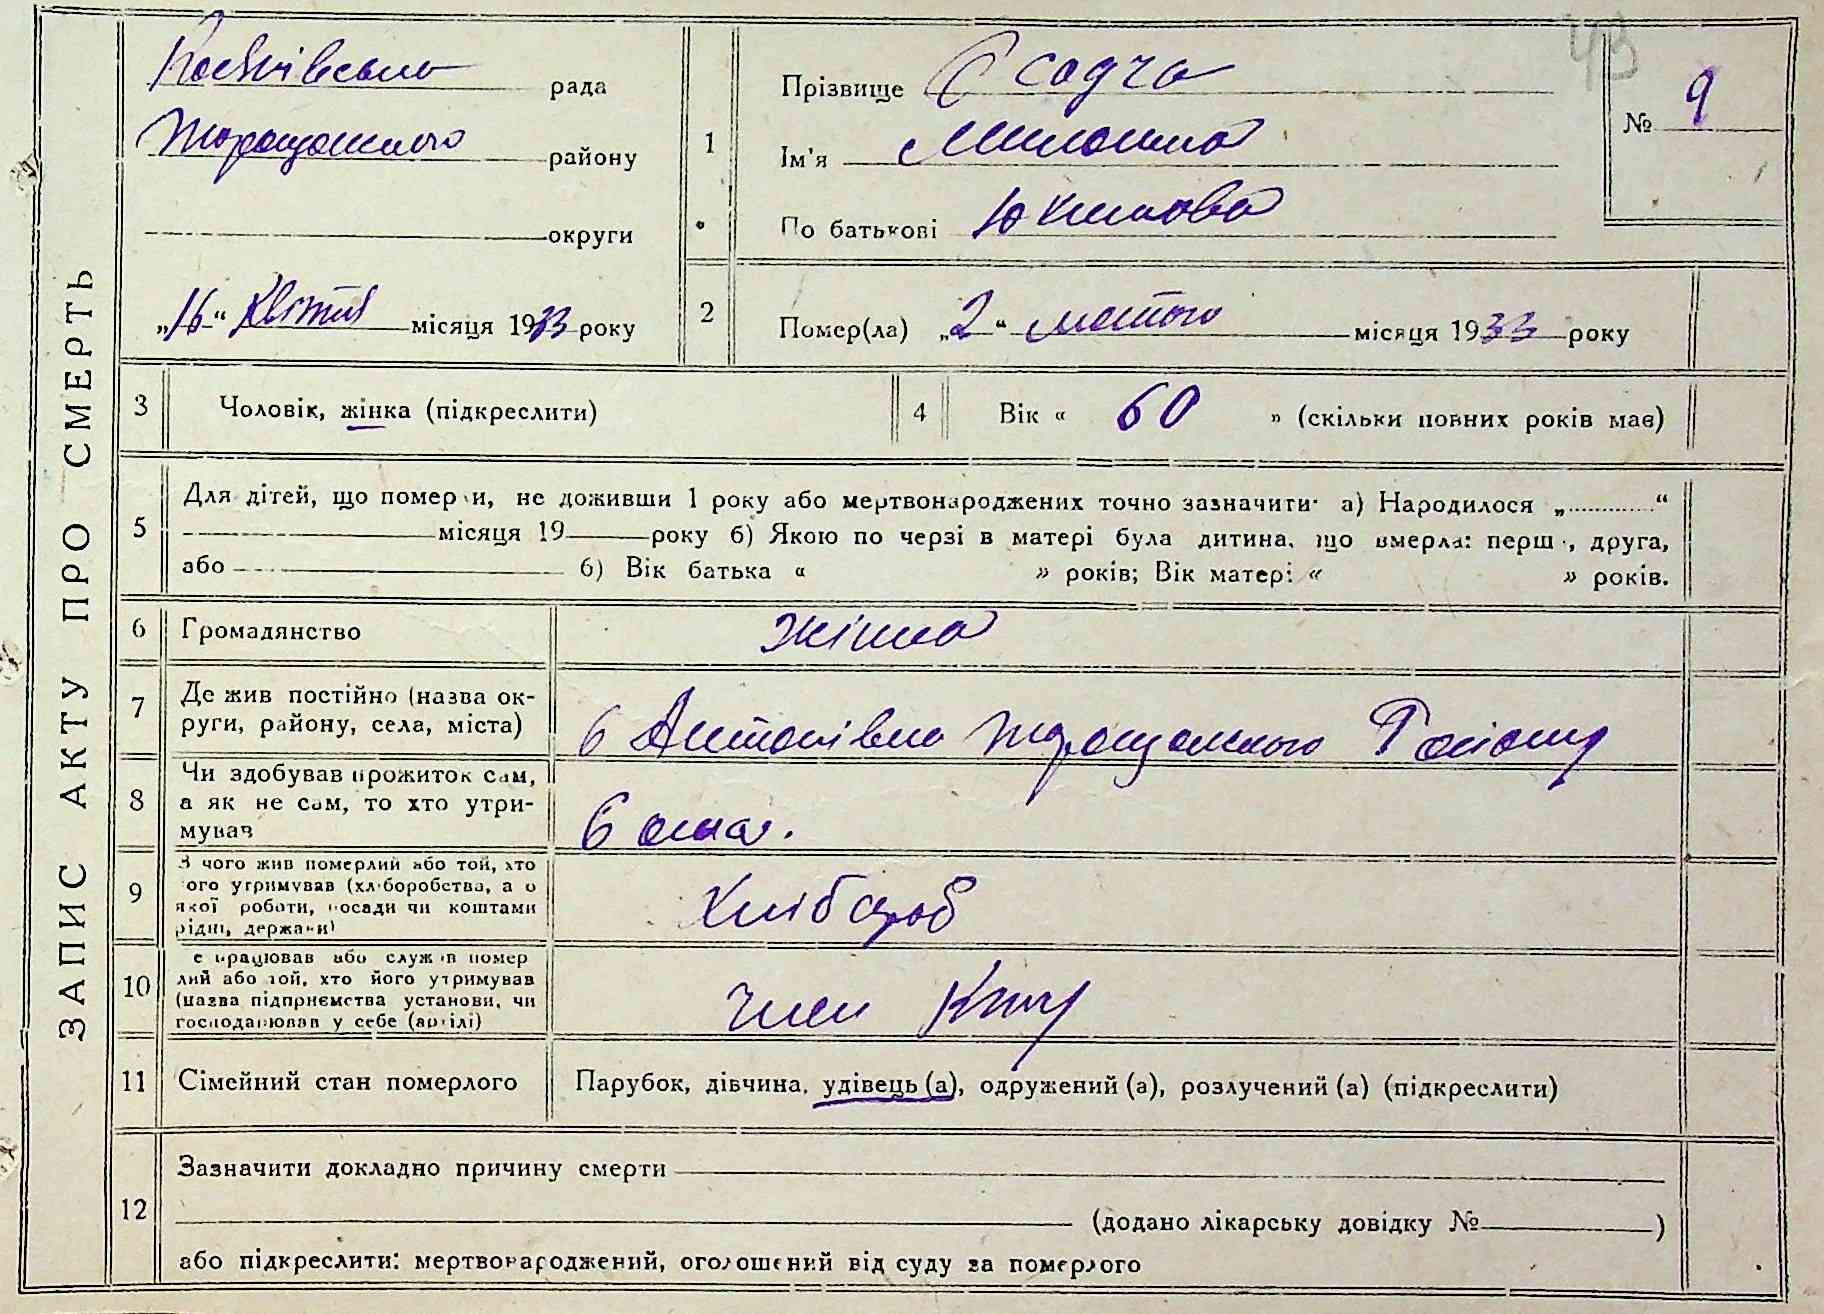 ЗАПИС АКТУ ПРО СМЕРТЬ
рада
Таращанського району
округи
„16“ Квітня місяця 1933 року
1
Прізвище Осадча
Ім'я
По батькові Юхимова
№ 9
43
2
Помер(ла) „2“ лютого місяця 1933 року
3
Чоловік, жінка (підкреслити)
4
Вік « 60 » (скільки повних років має)
5
Для дітей, що померли, не доживши 1 року або мертвонароджених точно зазначити: а) Народилося „............“
місяця 19 року б) Якою по черзі в матері була дитина, що вмерла: перша, друга,
або 6) Вік батька « » років; Вік матері « » років.
6
Громадянство
жінка
7
Де жив постійно (назва ок-
руги, району, села, міста)
Антонівка Таращанського Району
8
Чи здобував прожиток сам,
а як не сам, то хто утри-
мував
сама.
9
З чого жив померлий або той, хто
його утримував (хліборобства, або
якої роботи, посади чи коштами
рідні, держави)
Хлібороб
10
Де працював або служив помер
лий або той, хто його утримував
(назва підприємства установи, чи
господарював у себе (артілі)
член
11
Сімейний стан померлого
Парубок, дівчина, удівець (а), одружений (а), розлучений (а) (підкреслити)
12
Зазначити докладно причину смерти
(додано лікарську довідку № )
або підкреслити: мертвонароджений, оголошений від суду за померлого